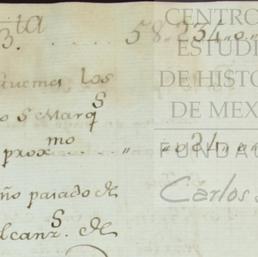 ta
3. . . . . . 58.234„0„
quemes, los
o S Marq^s
prox^mo . . . „
ño pasado de
alcanz^s. de
CENTRO
ESTUDI
DE HISTO
DE MEX
FUNDAC
Carlos